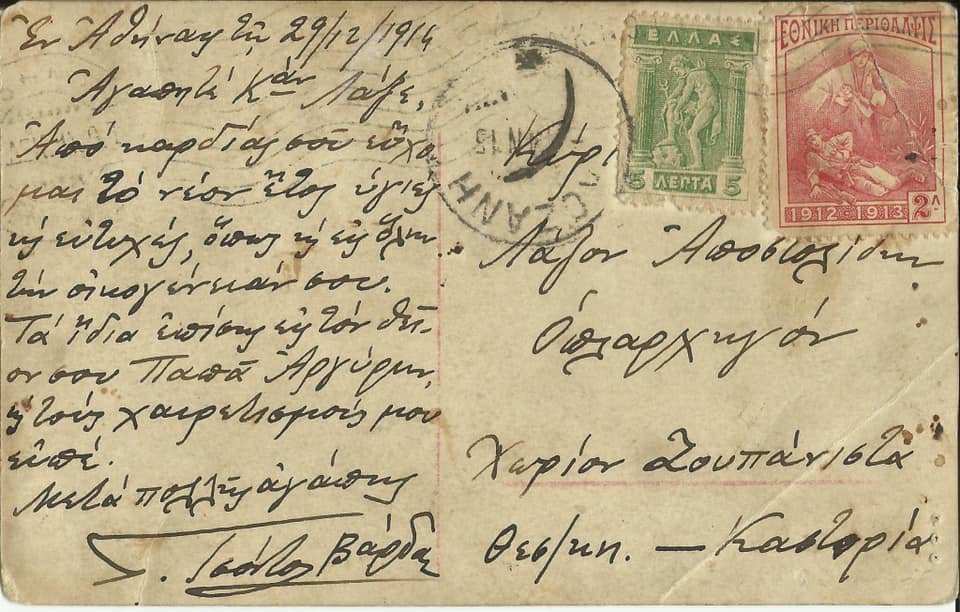 Ἐν Ἀθήναις τῇ 29/12/1914
Ἀγαπητέ Κ<sup>άν</sup> Λάζε,
Ἀπό καρδίας σοῦ εὔχο
μαι τό νέον ἔτος ὑγιές
κ εὐτυχές, ὅπως κ εἰς ὅλην
τήν οἰκογένειάν σου.
Τά ἴδια ἐπίσης εἰς τόν θεῖ-
ον σου Παπᾶ Ἀργύρην,
κ τούς χαιρετισμούς μου
εἰπέ.
Μετά πολλῆς ἀγάπης
Γ. Τσόντος Βάρδας
ΕΛΛΑΣ
5 ΛΕΠΤΑ 5
ΕΘΝΙΚΗ ΠΕΡΙΘΑΛΨΙΣ
1912-1913 2Λ
ΚΟΖΑΝΗ
15
Κύρι
Λάζον Ἀποστολίδην
Ὁπλαρχηγόν
Χωρίον Ζουπάνιστα
Θεσ/κη. — Καστορία